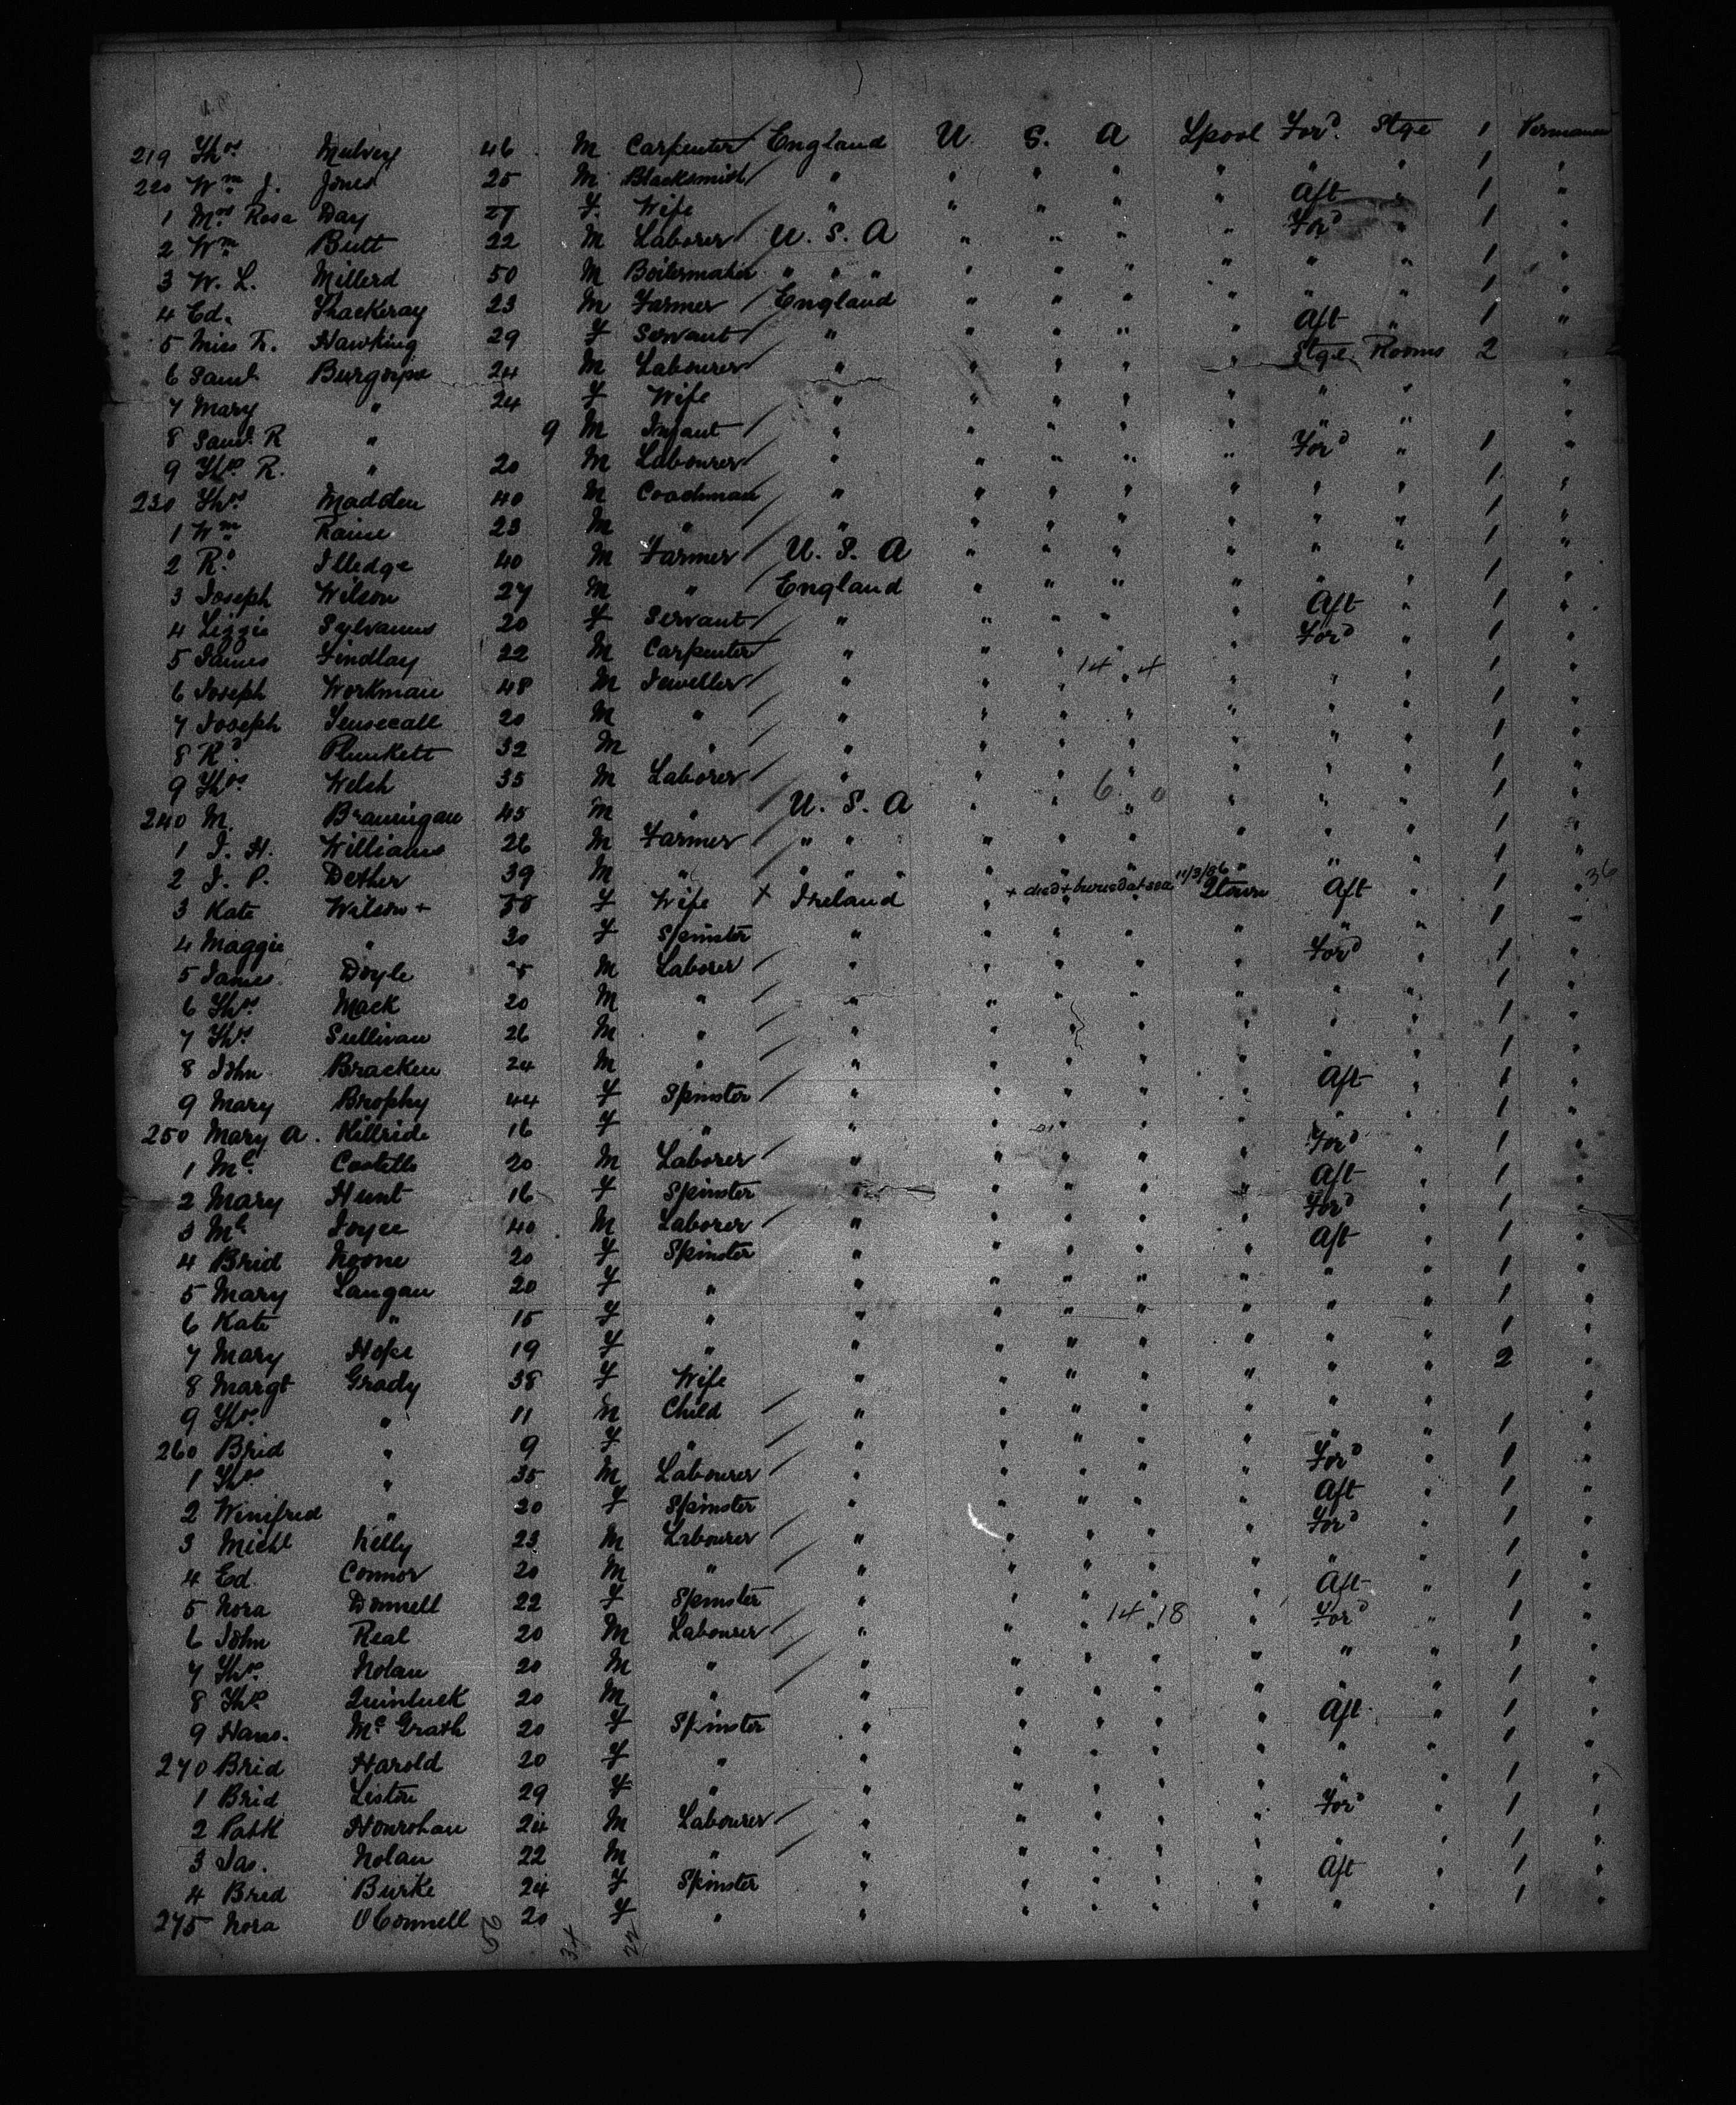 219 Thos Mulvey 46 M Carpenter England U. S. A Lpool For'd Stge 1
220 Wm J. Jones 25 M Blacksmith " " " " " " " 1 "
1 Mrs Rosa Day 27 F Wife " " " " " Aft " 1 "
2 Wm Butt 22 M Laborer U. S. A " " " " For'd " 1 "
3 W. L. Millerd 50 M Boilermaker " " " " " " " " " 1 "
4 Ed. Thackeray 23 M Farmer England " " " " " " 1 "
5 Miss Hawking 29 F Servant " " " " " Aft " 1 "
6 Saml 24 M Labourer " " " " " Stge Rooms 2 "
7 Mary " 24 F Wife " " " " " " " "
8 Saml R " 9 M Infant " " " " " " " "
9 Thos R. " 20 M Labourer " " " " " For'd " 1 "
230 Thos Madden 40 M Coachman " " " " " " " 1 "
1 Wm Raine 23 M " " " " " " " " 1 "
2 Rd Illedge 40 M Farmer U. S. A " " " " " " 1 "
3 Joseph Wilson 27 M " England " " " " " " 1 "
4 Lizzie Sylvanus 20 F Servant " " " " " Aft " 1 "
5 James Findlay 22 M Carpenter " " " " " For'd " 1 "
6 Joseph Workman 48 M Jeweller " " " 14 " 4 " " " 1 "
7 Joseph 20 M " " " " " " " " 1 "
8 Rd Plunkett 32 M " " " " " " " " 1 "
9 Thos Welsh 35 M Laborer " " " " " " " 1 "
240 M. Brannigan 45 M " U. S. A " " 6 " 0 " " " 1 "
1 J. H. Williams 26 M Farmer " " " " " " " " 1 "
2 J. P. Dether 39 M " " " " " " " " " 1 "
3 Kate Wilson + F Wife + Ireland " + died + buried at sea 11/3/86 Qtown Aft " 1 " 36
4 Maggie " 20 F Spinster " " " " " " " 1 "
5 James Doyle M Laborer " " " " " For'd " 1 "
6 Thos Mack 20 M " " " " " " " " 1 "
7 Thos Sullivan 26 M " " " " " " " " 1 "
8 John Bracken 24 M " " " " " " " " 1 "
9 Mary Brophy 44 F Spinster " " " " " Aft " 1 "
250 Mary A. Killride 16 F " " " " " " " " 1 "
1 Ml Costello 20 M Laborer " " " " " For'd " 1 "
2 Mary Hunt 16 F Spinster " " " " " Aft " 1 "
3 Ml Joyce 40 M Laborer " " " " " For'd " 1 "
4 Brid Noone 20 F Spinster " " " " " Aft " 1 "
5 Mary Langan 20 F " " " " " " " " 1 "
6 Kate " 15 F " " " " " " " " 1 "
7 Mary Hope 19 F " " " " " " " " 1 "
8 Margt Grady 38 F Wife " " " " " " " 2 "
9 Thos " 11 M Child " " " " " " " "
260 Brid " 9 F " " " " " " " " 1 "
1 Thos " 35 M Labourer " " " " " For'd " 1 "
2 Winifred " 20 F Spinster " " " " " Aft " 1 "
3 Michl Kelly 23 M Labourer " " " " " For'd " 1 "
4 Ed. Connor 20 M " " " " " " " " 1 "
5 Nora Donnell 22 F Spinster " " " " " Aft " 1 "
6 John Real 20 M Labourer " " " 14 " 18 " For'd " 1 "
7 Thos Nolan 20 M " " " " " " " " 1 "
8 Thos Quinluck 20 M " " " " " " " " 1 "
9 Hans. McGrath 20 F Spinster " " " " " Aft " 1 "
270 Brid Harold 20 F " " " " " " " " 1 "
1 Brid Liston 29 F " " " " " " " " 1 "
2 Patk Hourohan 24 M Labourer " " " " " For'd " 1 "
3 Jas. Nolan 22 M " " " " " " " " 1 "
4 Brid Burke 24 F Spinster " " " " " Aft " 1 "
275 Nora O'Connell 20 F " " " " " " " " 1 "
34 22